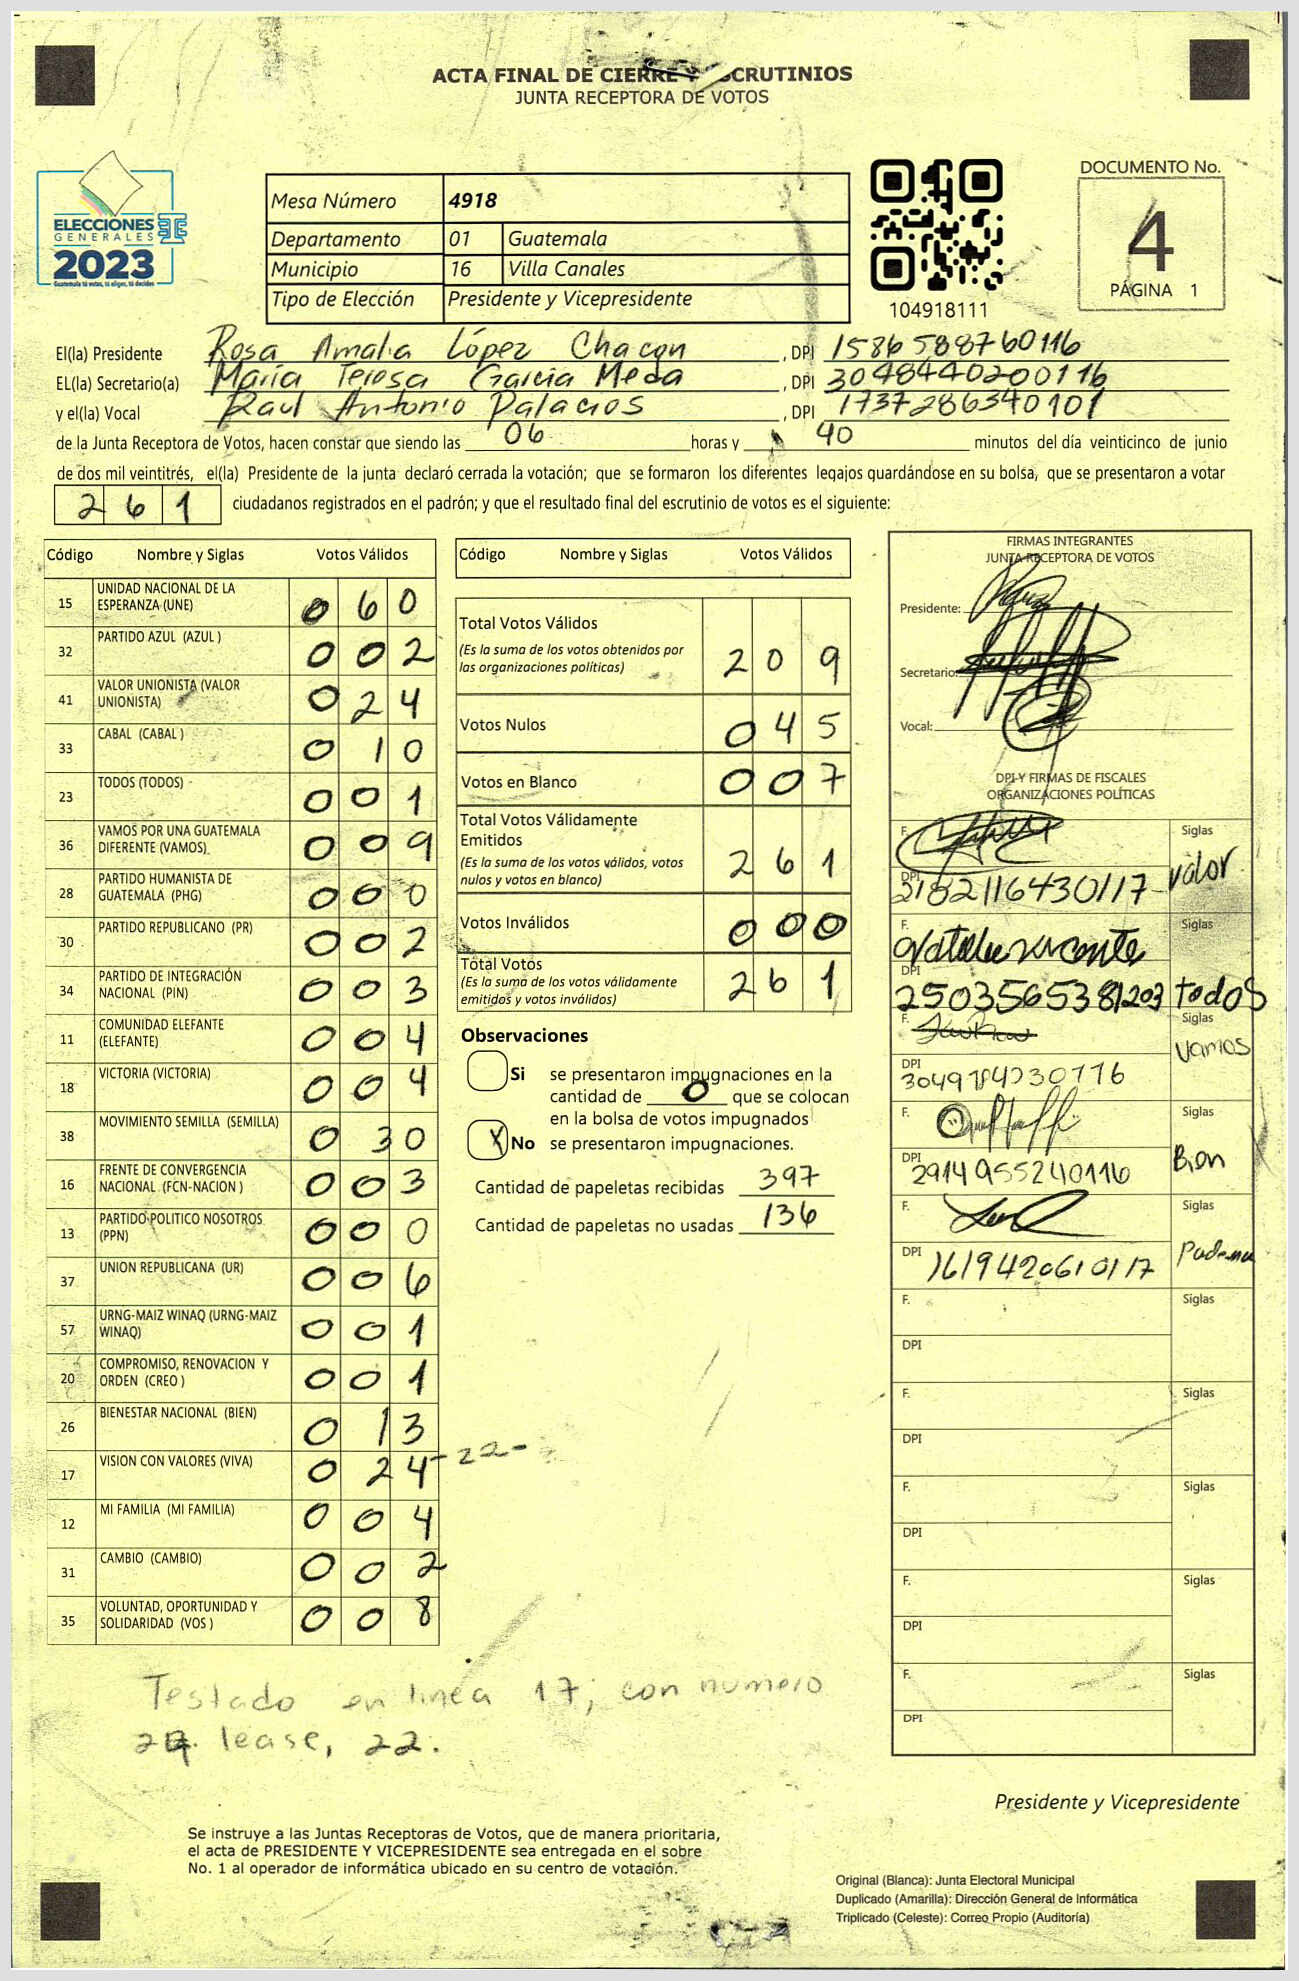 ACTA FINAL DE CIERRE Y ESCRUTINIOS
JUNTA RECEPTORA DE VOTOS
ELECCIONES
GENERALES
2023
Guatemala tú votas, tú eliges, tú decides
Mesa Número 4918
Departamento 01 Guatemala
Municipio 16 Villa Canales
Tipo de Elección Presidente y Vicepresidente
104918111
DOCUMENTO No.
4
PÁGINA 1
El(la) Presidente Rosa Amalia López Chacon, DPI 1586588760116
EL(la) Secretario(a) María Teresa Garcia Meda, DPI 3048440200116
y el(la) Vocal Raul Antonio Palacios, DPI 1737286340101
de la Junta Receptora de Votos, hacen constar que siendo las 06 horas y 40 minutos del día veinticinco de junio
de dos mil veintitrés, el(la) Presidente de la junta declaró cerrada la votación; que se formaron los diferentes legajos guardándose en su bolsa, que se presentaron a votar
261 ciudadanos registrados en el padrón; y que el resultado final del escrutinio de votos es el siguiente:
Código Nombre y Siglas Votos Válidos
15 UNIDAD NACIONAL DE LA ESPERANZA (UNE) 060
32 PARTIDO AZUL (AZUL ) 002
41 VALOR UNIONISTA (VALOR UNIONISTA) 024
33 CABAL (CABAL ) 010
23 TODOS (TODOS) 001
36 VAMOS POR UNA GUATEMALA DIFERENTE (VAMOS) 009
28 PARTIDO HUMANISTA DE GUATEMALA (PHG) 000
30 PARTIDO REPUBLICANO (PR) 002
34 PARTIDO DE INTEGRACIÓN NACIONAL (PIN) 003
11 COMUNIDAD ELEFANTE (ELEFANTE) 004
18 VICTORIA (VICTORIA) 004
38 MOVIMIENTO SEMILLA (SEMILLA) 030
16 FRENTE DE CONVERGENCIA NACIONAL (FCN-NACION ) 003
13 PARTIDO POLITICO NOSOTROS (PPN) 000
37 UNION REPUBLICANA (UR) 006
57 URNG-MAIZ WINAQ (URNG-MAIZ WINAQ) 001
20 COMPROMISO, RENOVACION Y ORDEN (CREO ) 001
26 BIENESTAR NACIONAL (BIEN) 013
17 VISION CON VALORES (VIVA) 024 -22-
12 MI FAMILIA (MI FAMILIA) 004
31 CAMBIO (CAMBIO) 002
35 VOLUNTAD, OPORTUNIDAD Y SOLIDARIDAD (VOS ) 008
Código Nombre y Siglas Votos Válidos
Total Votos Válidos 209
(Es la suma de los votos obtenidos por
las organizaciones políticas)
Votos Nulos 045
Votos en Blanco 007
Total Votos Válidamente
Emitidos 261
(Es la suma de los votos válidos, votos
nulos y votos en blanco)
Votos Inválidos 000
Total Votos 261
(Es la suma de los votos válidamente
emitidos y votos inválidos)
Observaciones
Si se presentaron impugnaciones en la
cantidad de 0 que se colocan
en la bolsa de votos impugnados
X No se presentaron impugnaciones.
Cantidad de papeletas recibidas 397
Cantidad de papeletas no usadas 136
FIRMAS INTEGRANTES
JUNTA RECEPTORA DE VOTOS
Presidente:
Secretario:
Vocal:
DPI Y FIRMAS DE FISCALES
ORGANIZACIONES POLÍTICAS
F. Siglas
DPI 2182116430117 valor
F. Siglas
DPI 2503565381203 todos
F. Siglas
DPI Vamos
F. Siglas
DPI 2914955240116 Bien
F. Siglas
DPI 1619420610117
F. Siglas
DPI
F. Siglas
DPI
F. Siglas
DPI
F. Siglas
DPI
F. Siglas
DPI
Testado en linea 17; con numero
24. lease, 22.
Presidente y Vicepresidente
Se instruye a las Juntas Receptoras de Votos, que de manera prioritaria,
el acta de PRESIDENTE Y VICEPRESIDENTE sea entregada en el sobre
No. 1 al operador de informática ubicado en su centro de votación.
Original (Blanca): Junta Electoral Municipal
Duplicado (Amarilla): Dirección General de Informática
Triplicado (Celeste): Correo Propio (Auditoría)